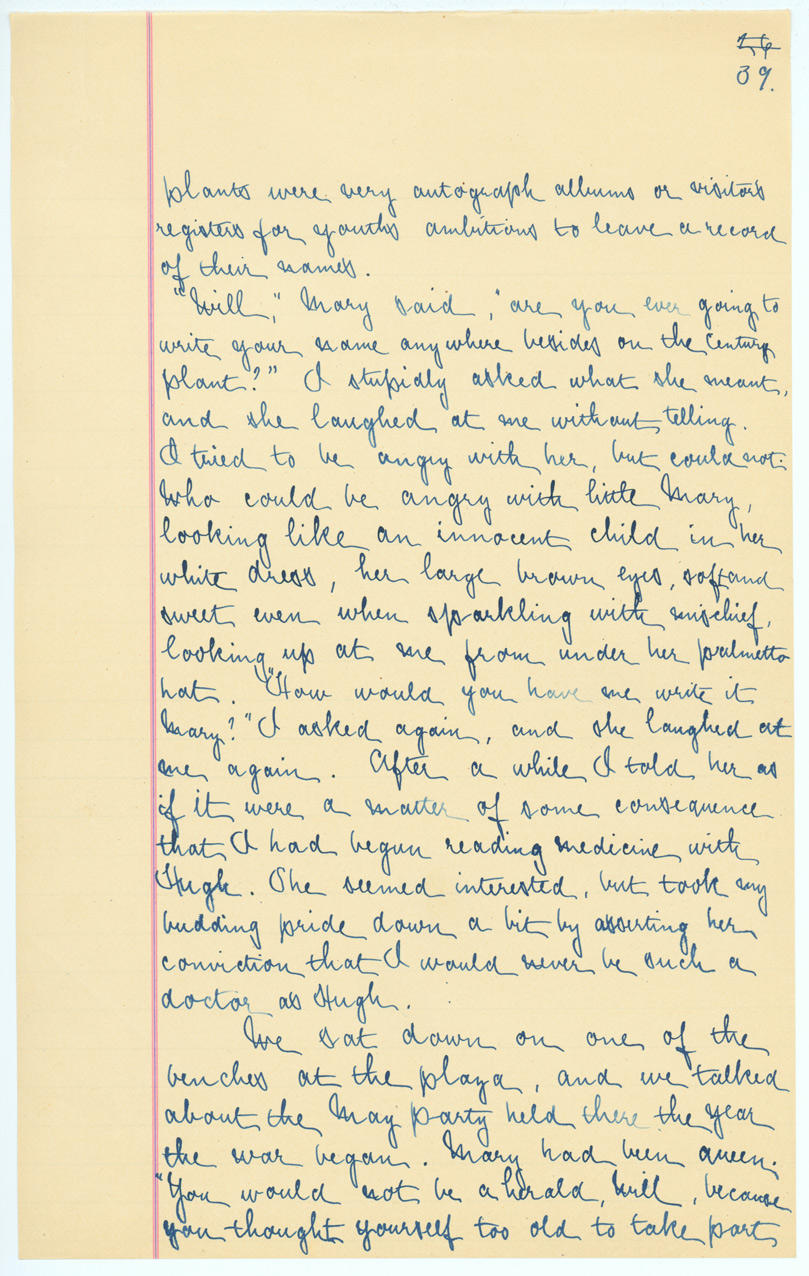 26
39.
plants were very autograph albums or visitors
registers for youths ambitions to leave a record
of their names.
"Will," Mary said, "are you ever going to
write your name anywhere besides on the Century
plant?" I stupidly asked what she meant,
and she laughed at me without telling.
I tried to be angry with her, but could not.
Who could be angry with little Mary,
looking like an innocent child in her
white dress, her large brown eyes, soft and
sweet even when sparkling with mischief,
looking up at me from under her palmetto
hat. "How would you have me write it
Mary?" I asked again, and she laughed at
me again. After a while I told her as
if it were a matter of some consequence
that I had begun reading medicine with
Hugh. She seemed interested, but took my
budding pride down a bit by asserting her
conviction that I would never be such a
doctor as Hugh.
We sat down on one of the
benches at the plaza, and we talked
about the May party held there the year
the war began. Mary had been queen.
"You would not be a herald, Will, because
you thought yourself too old to take part